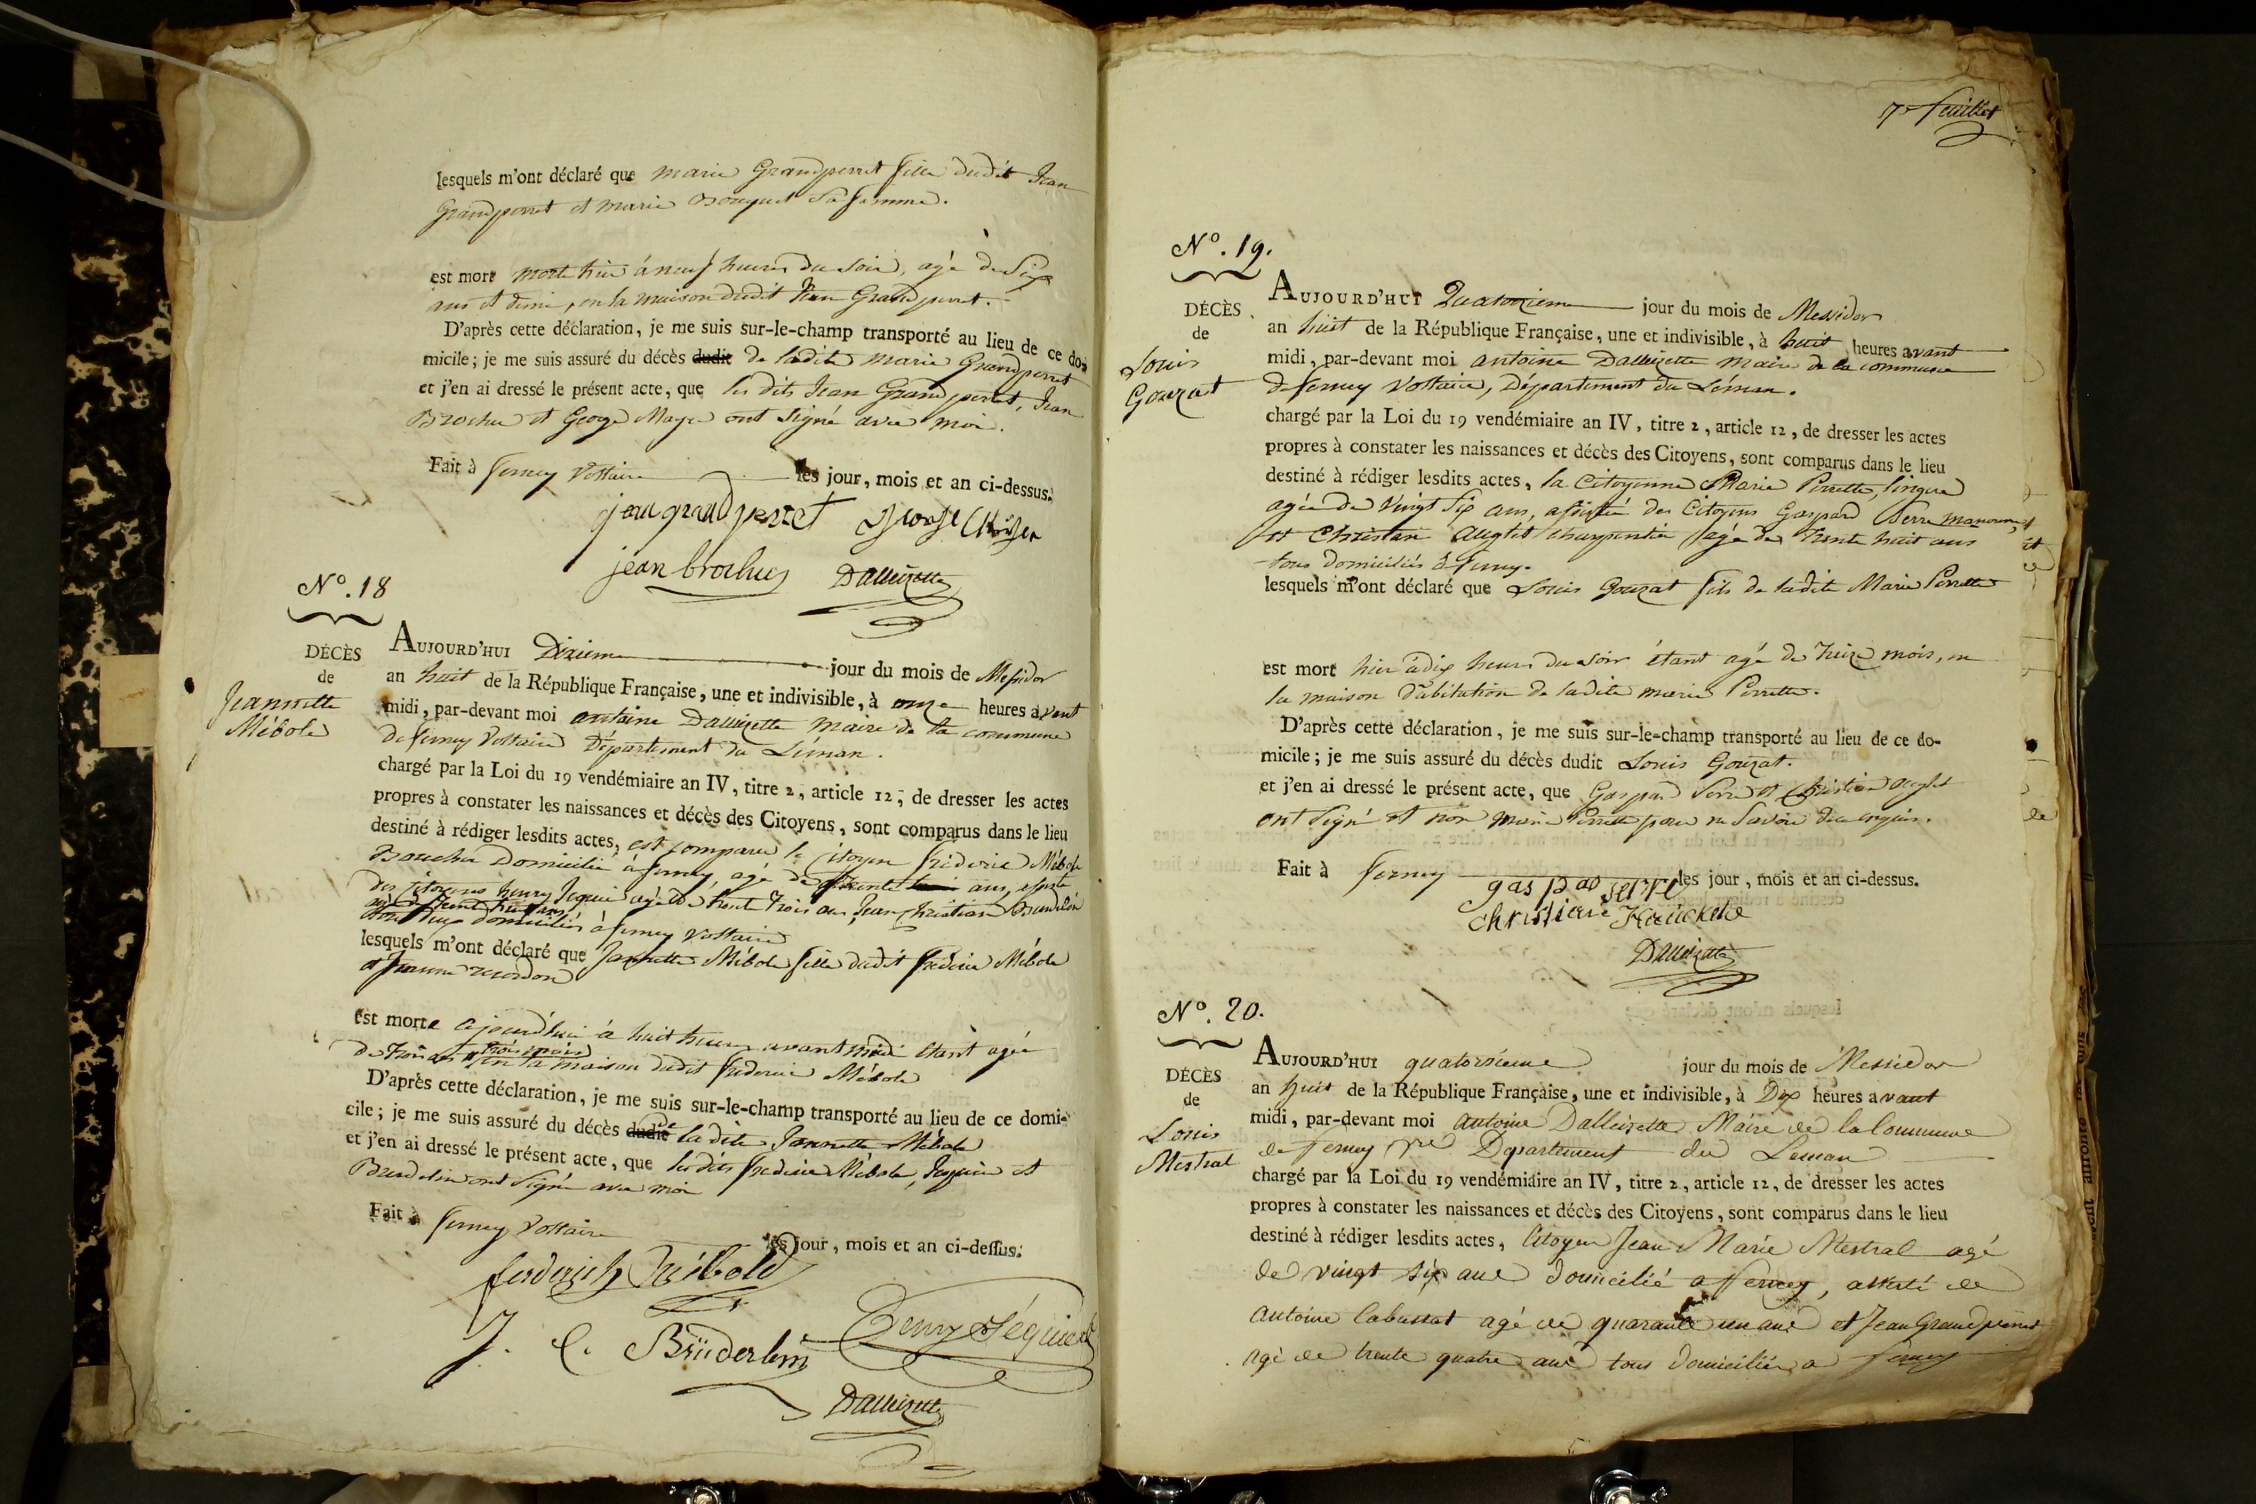 lesquels m'ont déclaré que marie Grandperret fille dudit Jean
Grandperret et marie Bouquet sa femme.
est mort morte hier à neuf heures du soir, agé de Six
ans et demi, en la maison dudit Jean Grandperret.
D'après cette déclaration, je me suis sur-le-champ transporté au lieu de ce do-
micile; je me suis assuré du décès dudit de ladite marie Grandperret
et j'en ai dressé le présent acte, que les dits Jean Grandperret, Jean
Brochu et George Maye ont signé avec moi.
Fait à ferney Voltaire les jour, mois et an ci-dessus.
jean grand perret
jean brochu Dalleizette
N°. 18
DÉCÈS
de
Jeannette
Mébold
AUJOURD'HUI Dixieme jour du mois de Messidor
an huit de la République Française, une et indivisible, à onze heures avant
midi, par-devant moi antoine Dalleizette maire de la commune
de ferney Voltaire Département du Léman.
chargé par la Loi du 19 vendémiaire an IV, titre 2, article 12, de dresser les actes
propres à constater les naissances et décès des Citoyens, sont comparus dans le lieu
destiné à rédiger lesdits actes, est comparu le Citoyen frederic Mébold
Boucher Domicilié à ferney, agé de trente ans, assisté
des citoyens henry Jequier agé de trente trois ans, Jean Christian
tous deux domiciliés à ferney Voltaire
lesquels m'ont déclaré que Jannette Mébold fille dudit frederic Mébold
et
est morte cejourd'hui à huit heures avant midi étant agée
de trois ans trois mois en la maison dudit frederic Mébold
D'après cette déclaration, je me suis sur-le-champ transporté au lieu de ce domi-
cile; je me suis assuré du décès dudit de ladite Jannette Mébold
et j'en ai dressé le présent acte, que lesdits frederic Mébold, Jequier et
Bruderlin ont signé avec moi
Fait à ferney Voltaire
les jour, mois et an ci-dessus.
ferderich Mébold
J. C. Brüderlin henry Séquier
Dalleizette
7e feuillet
N°. 19.
DÉCÈS
de
Louis
Gouzat
AUJOURD'HUI Quatorzieme jour du mois de Messidor
an huit de la République Française, une et indivisible, à huit heures avant
midi, par-devant moi antoine Dalleizette maire de la commune
de ferney Voltaire, Département du Léman.
chargé par la Loi du 19 vendémiaire an IV, titre 2, article 12, de dresser les actes
propres à constater les naissances et décès des Citoyens, sont comparus dans le lieu
destiné à rédiger lesdits actes, la Citoyenne Marie Perrette, lingere
agée de vingt six ans, assistée des Citoyens Gaspard Serre
et Christian charpentier agé de trente huit ans
tous domiciliés à ferney.
lesquels m'ont déclaré que Louis Gouzat fils de ladite Marie Perrette
est mort hier à dix heures du soir étant agé de treize mois, en
la maison d'abitation de ladite marie Perrette.
D'après cette déclaration, je me suis sur-le-champ transporté au lieu de ce do-
micile; je me suis assuré du décès dudit Louis Gouzat.
et j'en ai dressé le présent acte, que Gaspard Serre et Christian
ont signé et non marie Perrette pour ne savoir de ce enquise.
Fait à Ferney les jour, mois et an ci-dessus.
gaspard serre
Christian
Dalleizette
N°. 20.
DÉCÈS
de
Louis
Mestral
AUJOURD'HUI quatorzieme jour du mois de Messidor
an huit de la République Française, une et indivisible, à Dix heures avant
midi, par-devant moi Antoine Dalleizette Maire de la Commune
de Ferney vre Departement du Leman
chargé par la Loi du 19 vendémiaire an IV, titre 2, article 12, de dresser les actes
propres à constater les naissances et décès des Citoyens, sont comparus dans le lieu
destiné à rédiger lesdits actes, Citoyen Jean Marie Mestral agé
de vingt six ans domicilié a Ferney, assisté de
antoine Cabussat agé de quarante un ans et Jean Grandperret
agé de trente quatre ans tous domiciliés a Ferney